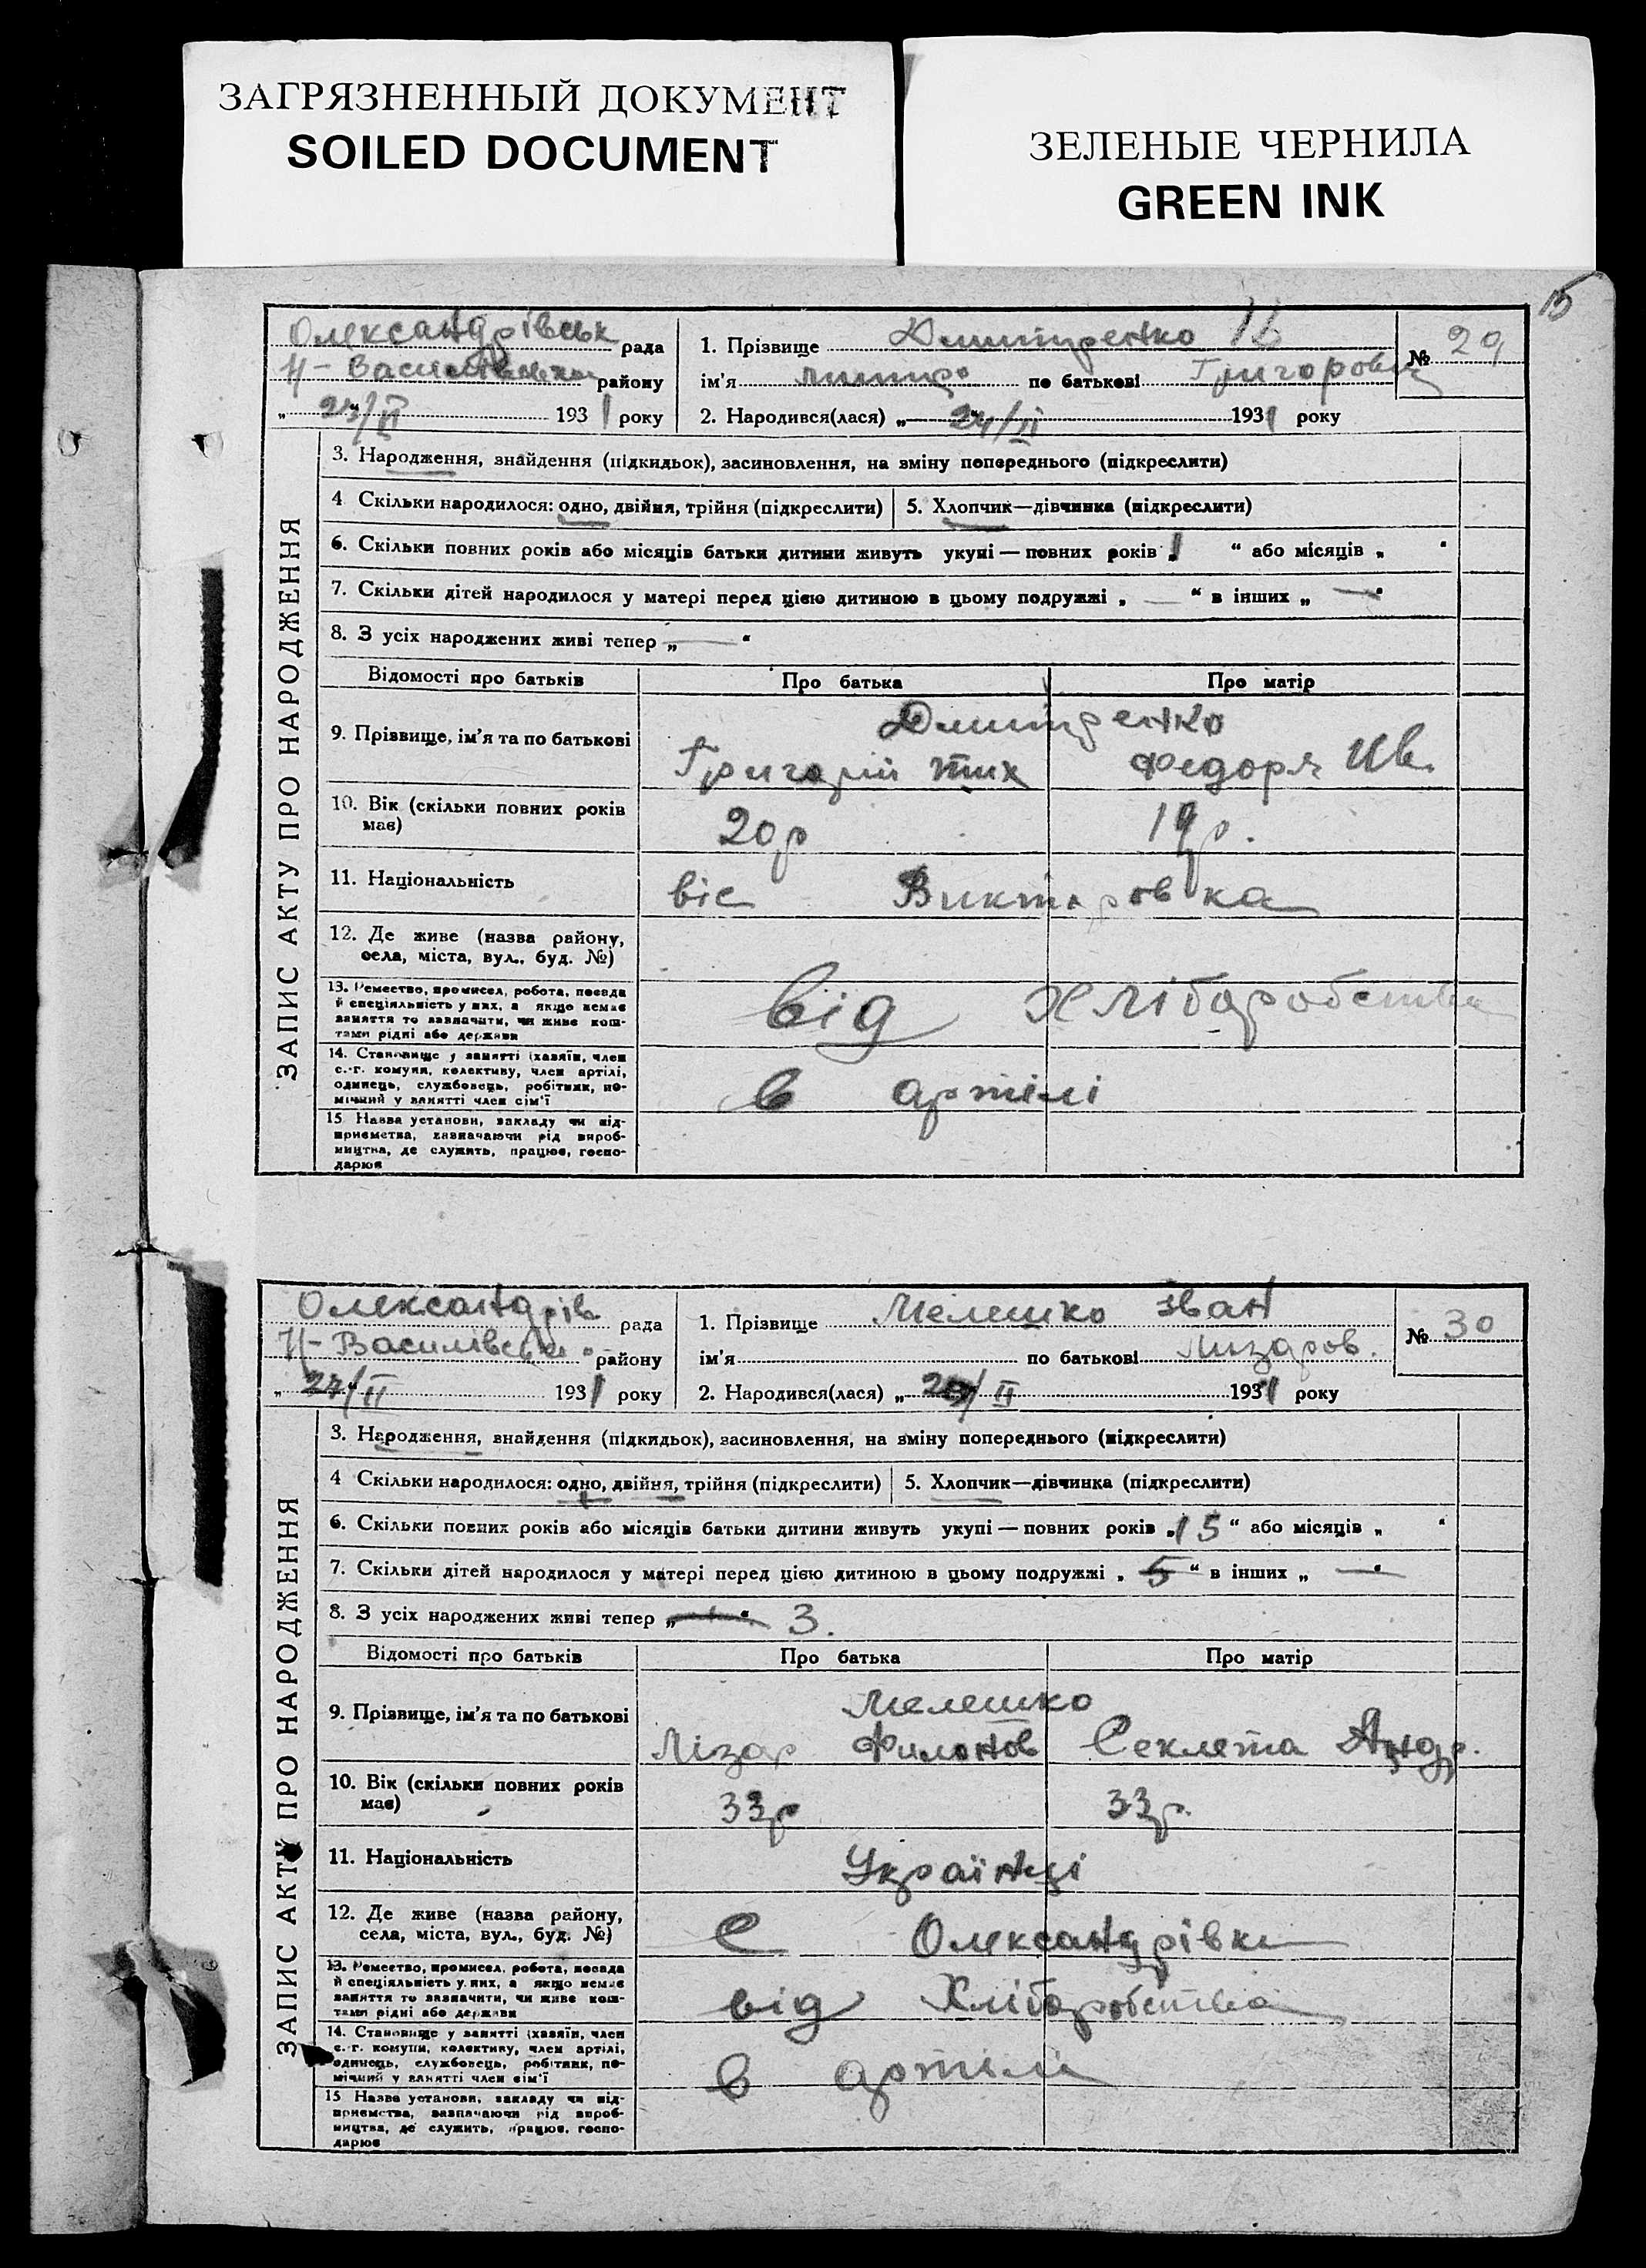 ЗАГРЯЗНЕННЫЙ ДОКУМЕНТ
SOILED DOCUMENT
ЗЕЛЕНЫЕ ЧЕРНИЛА
GREEN INK
15
ЗАПИС АКТУ ПРО НАРОДЖЕННЯ
Олександрівськ рада
Н-Василівськ району
" /II 1931 року
1. Прізвище Дмитренко
ім'я по батькові Григорович
№ 29
2. Народився(лася) „ 24/II 1931 року
3. Народження, знайдення (підкидьок), засиновлення, на зміну попереднього (підкреслити)
4 Скільки народилося: одно, двійня, трійня (підкреслити)
5. Хлопчик—дівчинка (підкреслити)
6. Скільки повних років або місяців батьки дитини живуть укупі — повних років „1 “ або місяців „ “
7. Скільки дітей народилося у матері перед цією дитиною в цьому подружжі „ — “ в інших „ — “
8. З усіх народжених живі тепер „ — “
Відомості про батьків Про батька Про матір
9. Прізвище, ім'я та по батькові
Дмитренко
Григорій Тих Федоря Ив.
10. Вік (скільки повних років має)
20р 19р.
11. Національність
Викторовка
12. Де живе (назва району, села, міста, вул., буд. №)
13. Ремество, промисел, робота, посада й спеціяльність у них, а якщо немає заняття то зазначити, чи живе коштами рідні або держави
від Хліборобства
14. Становище у занятті (хазяїн, член с.-г. комуни, колективу, член артілі, одинець, службовець, робітник, помічний у занятті член сім'ї
в артілі
15 Назва установи, закладу чи підприємства, зазначаючи рід виробництва, де служить, працює, господарює
ЗАПИС АКТУ ПРО НАРОДЖЕННЯ
Олександрів рада
Н-Василівськ району
„ 27/II 1931 року
1. Прізвище Мелешко Іван
ім'я по батькові Лизаров.
№ 30
2. Народився(лася) „ /II 1931 року
3. Народження, знайдення (підкидьок), засиновлення, на зміну попереднього (підкреслити)
4 Скільки народилося: одно, двійня, трійня (підкреслити)
5. Хлопчик—дівчинка (підкреслити)
6. Скільки повних років або місяців батьки дитини живуть укупі — повних років „15“ або місяців „ “
7. Скільки дітей народилося у матері перед цією дитиною в цьому подружжі „ 5 “ в інших „ — “
8. З усіх народжених живі тепер „ — “ 3.
Відомості про батьків Про батька Про матір
9. Прізвище, ім'я та по батькові
Мелешко
Лізар Филонов Секлета Андр.
10. Вік (скільки повних років має)
33р 33р.
11. Національність
Українці
12. Де живе (назва району, села, міста, вул., буд. №)
с Олександрівки
13. Ремество, промисел, робота, посада й спеціяльність у них, а якщо немає заняття то зазначити, чи живе коштами рідні або держави
від Хліборобства
14. Становище у занятті (хазяїн, член с.-г. комуни, колективу, член артілі, одинець, службовець, робітник, помічний у занятті член сім'ї
в артілі
15 Назва установи, закладу чи підприємства, зазначаючи рід виробництва, де служить, працює, господарює